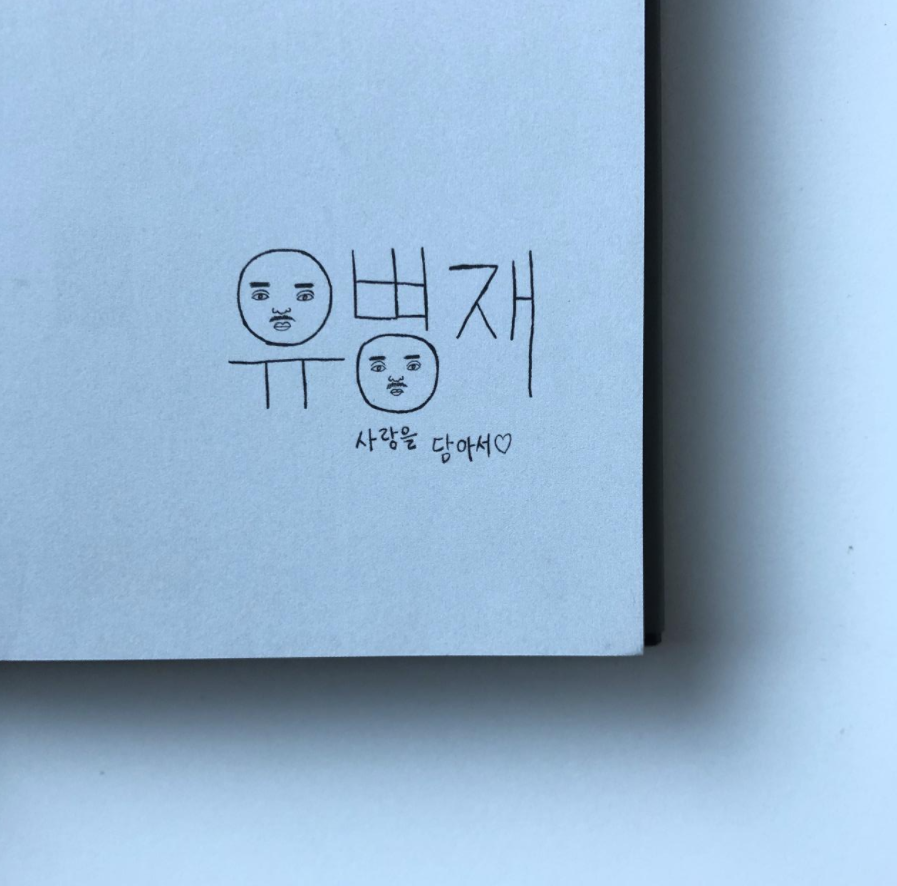 유병재
사랑을 담아서♡